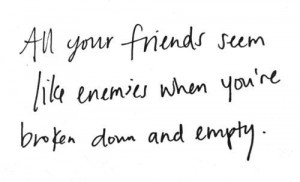 All your friends seem
like enemies when you're
broken down and empty.